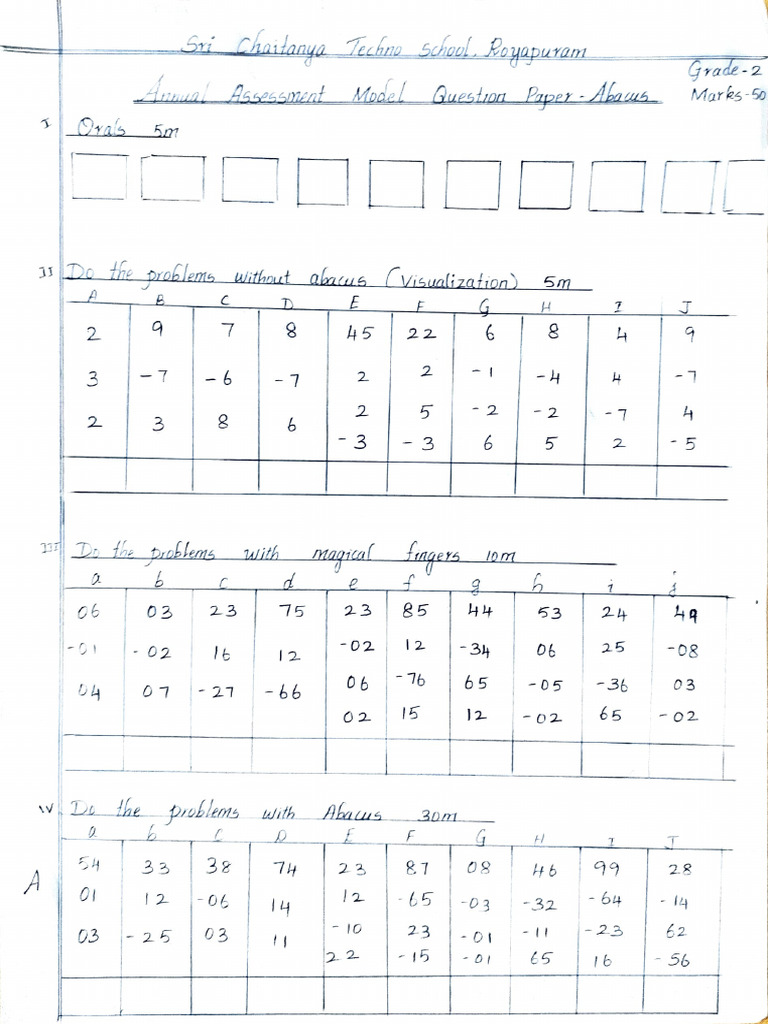 Sri Chaitanya Techno School, Royapuram
Grade-2
Annual Assessment Model Question Paper - Abacus Marks-50
I Orals 5m
II Do the problems without abacus (Visualization) 5m
A B C D E F G H I J
2 9 7 8 45 22 6 8 4 9
3 -7 -6 -7 2 2 -1 -4 4 -7
2 3 8 6 2 5 -2 -2 -7 4
-3 -3 6 5 2 -5
III Do the problems with magical fingers 10m
a b c d e f g h i j
06 03 23 75 23 85 44 53 24 49
-01 -02 16 12 -02 12 -34 06 25 -08
04 07 -27 -66 06 -76 65 -05 -36 03
02 15 12 -02 65 -02
IV Do the problems with Abacus 30m
a b C D E F G H I J
A
54 33 38 74 23 87 08 46 99 28
01 12 -06 14 12 -65 -03 -32 -64 -14
03 -25 03 11 -10 23 -01 -11 -23 62
22 -15 -01 65 16 -56